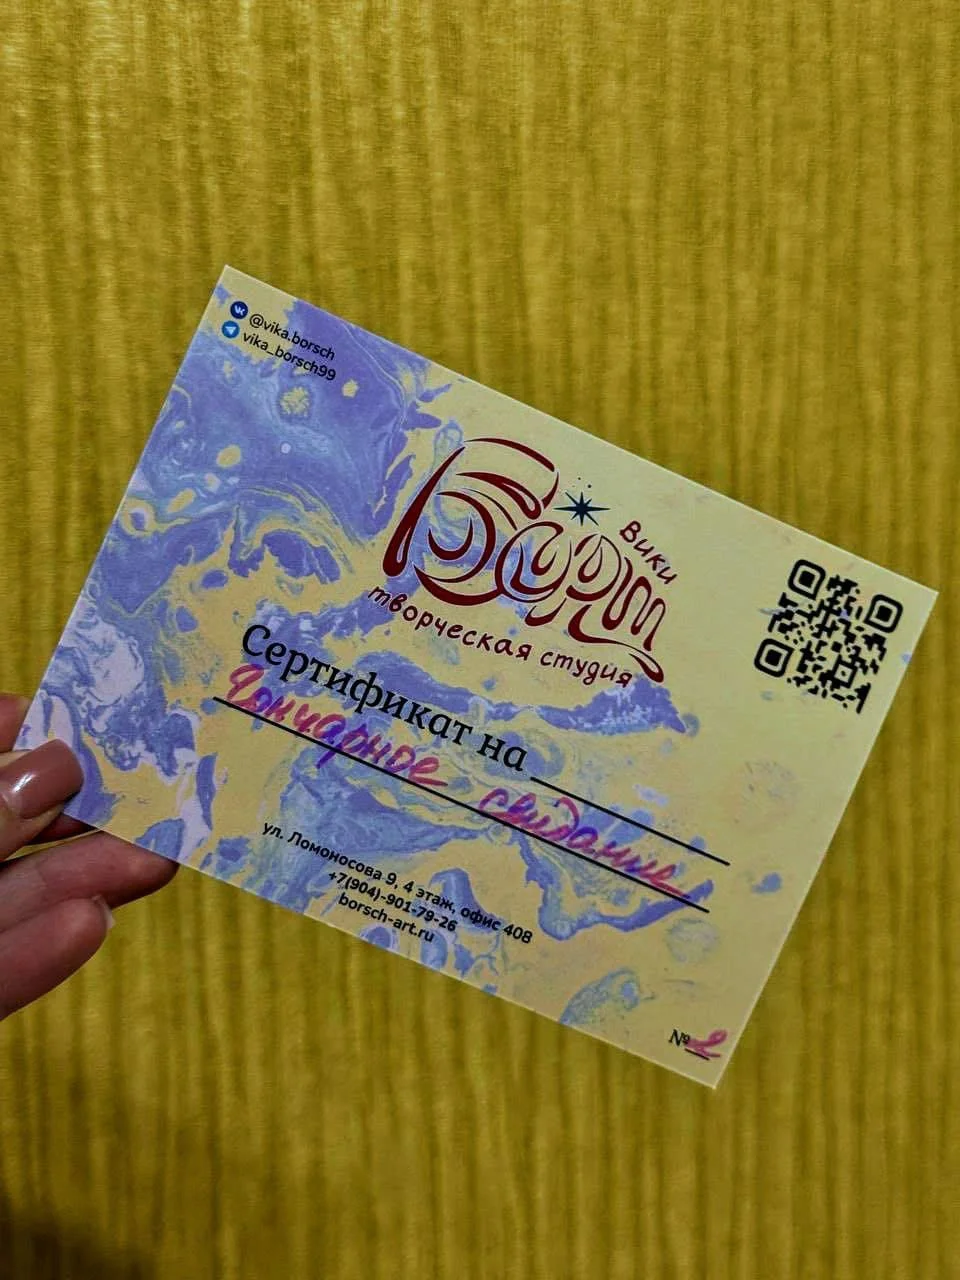 @vika.borsch
vika_borsch99
Борщ Вики
творческая студия
Сертификат на
Гончарное свидание
ул. Ломоносова 9, 4 этаж, офис 408
+7(904)-901-79-26
borsch-art.ru
№ 2